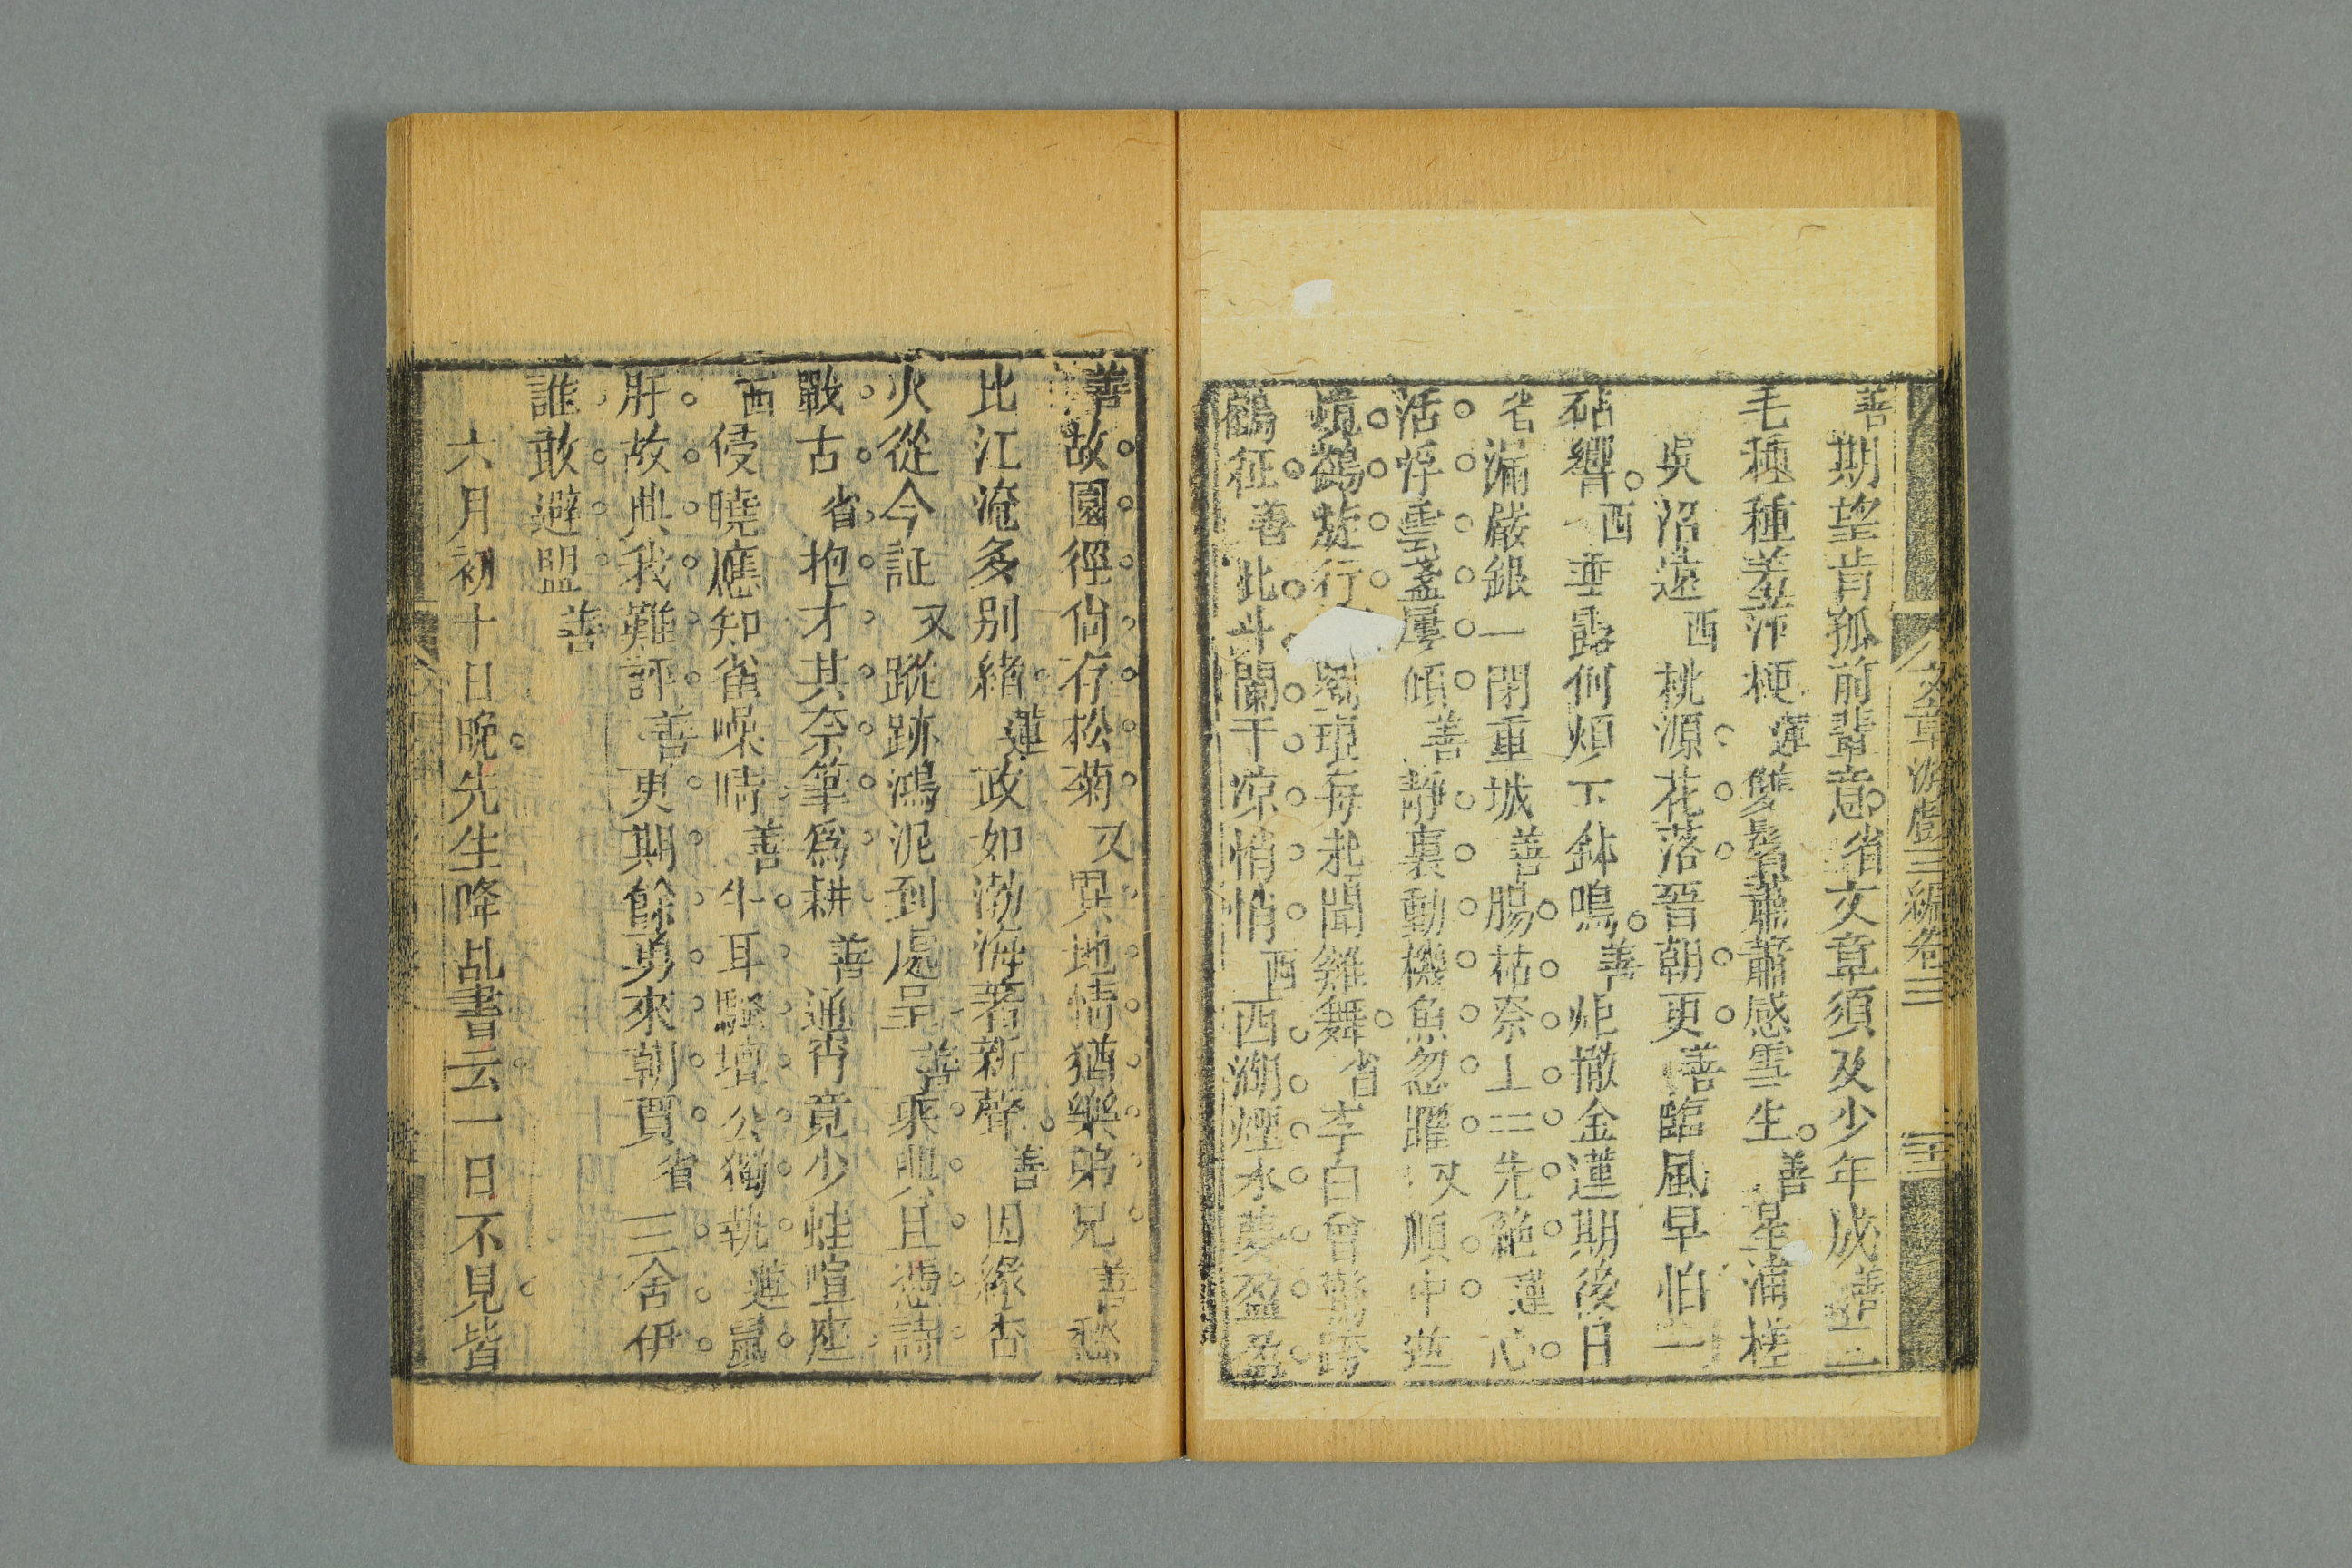 文章游戲三編卷三
善期望肯孤前輩意省文章須及少年成善二
毛種種羞萍梗蓮雙鬢蕭蕭感雪生善星浦槎
吳沼遠西桃源花落晉朝更善臨風早怕一
砧響西垂露何煩下鉢鳴善炬撤金蓮期後日
省漏嚴銀一閉重城善腸枯奈上二先絶蓮心
活浮雲盞屢傾善靜裏動機魚忽躍又順中逆
境鷁旋行琅每起聞雞舞省李白曾驚跨
鶴征善北斗闌干涼悄悄西西湖煙水夢盈盈
善故園徑尙存松菊又異地情猶樂弟兄善愁
比江淹多别緒蓮政如渤海著新聲善因緣杏
火從今証又蹤跡鴻泥到處呈善乘興且憑詩
戰古省抱才其奈筆爲耕善通宵竟少蛙喧座
西侵曉應知雀噪晴善牛耳騷壇公獨執蓮鼠
肝故典我難評善更期餘勇來朝賈省三舍伊
誰敢避盟善
六月初十日晚先生降乩書云一日不見皆